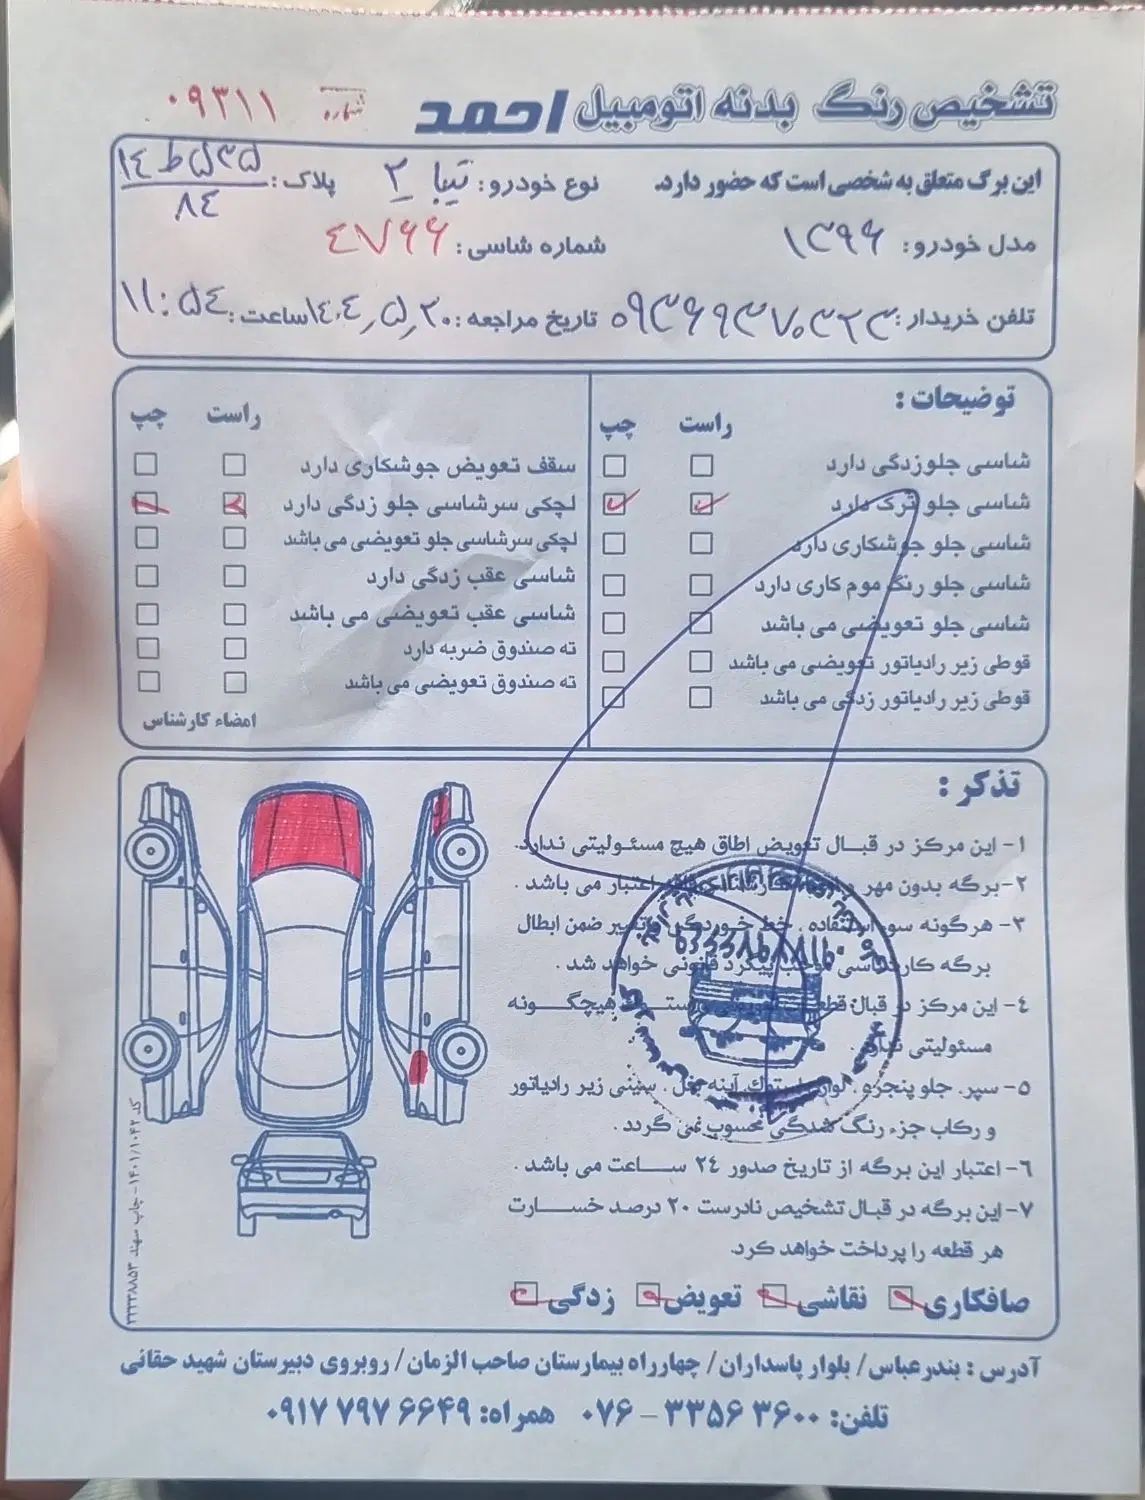 تشخیص رنگ بدنه اتومبیل احمد
شماره ۰۹۳۱۱
این برگ متعلق به شخصی است که حضور دارد. نوع خودرو: تیبا ۲ پلاک: ۱۴ ط ۵۳۵ / ۸۴
مدل خودرو: ۱۳۹۶ شماره شاسی: ۴۷۶۶
تلفن خریدار: ۰۹۳۶۹۳۷۰۳۲۳ تاریخ مراجعه: ۱۴۰۴٫۵٫۲۰ ساعت: ۱۱:۵۴
توضیحات:
راست چپ
شاسی جلوزدگی دارد
شاسی جلو ترک دارد
شاسی جلو جوشکاری دارد
شاسی جلو رنگ موم کاری دارد
شاسی جلو تعویضی می باشد
قوطی زیر رادیاتور تعویضی می باشد
قوطی زیر رادیاتور زدگی می باشد
راست چپ
سقف تعویض جوشکاری دارد
لچکی سرشاسی جلو زدگی دارد
لچکی سرشاسی جلو تعویضی می باشد
شاسی عقب زدگی دارد
شاسی عقب تعویضی می باشد
ته صندوق ضربه دارد
ته صندوق تعویضی می باشد
امضاء کارشناس
تذکر:
۱- این مرکز در قبال تعویض اطاق هیچ مسئولیتی ندارد.
۲- برگه بدون مهر و کارشناس اعتبار می باشد.
۳- هرگونه سوء استفاده، خط خوردگی و تغییر ضمن ابطال
برگه کارشناسی موجب پیگرد قانونی خواهد شد.
٤- این مرکز در قبال قطعات تعویضی و استوک هیچگونه
مسئولیتی ندارد.
۵- سپر، جلو پنجره، لوازم استوک، آینه بغل، سینی زیر رادیاتور
و رکاب جزء رنگ شدگی محسوب نمی گردد.
٦- اعتبار این برگه از تاریخ صدور ۲٤ ساعت می باشد.
۷- این برگه در قبال تشخیص نادرست ۲۰ درصد خسارت
هر قطعه را پرداخت خواهد کرد.
صافکاری نقاشی تعویض زدگی
کد ۱۴۰۱/۱۰۴۲ - چاپ سهند ۳۲۲۳۸۸۵۳
آدرس: بندرعباس/ بلوار پاسداران/ چهارراه بیمارستان صاحب الزمان/ روبروی دبیرستان شهید حقانی
تلفن: ۳۶۰۰ ۳۳۵۶ - ۰۷۶ همراه: ۶۶۴۹ ۷۹۷ ۰۹۱۷